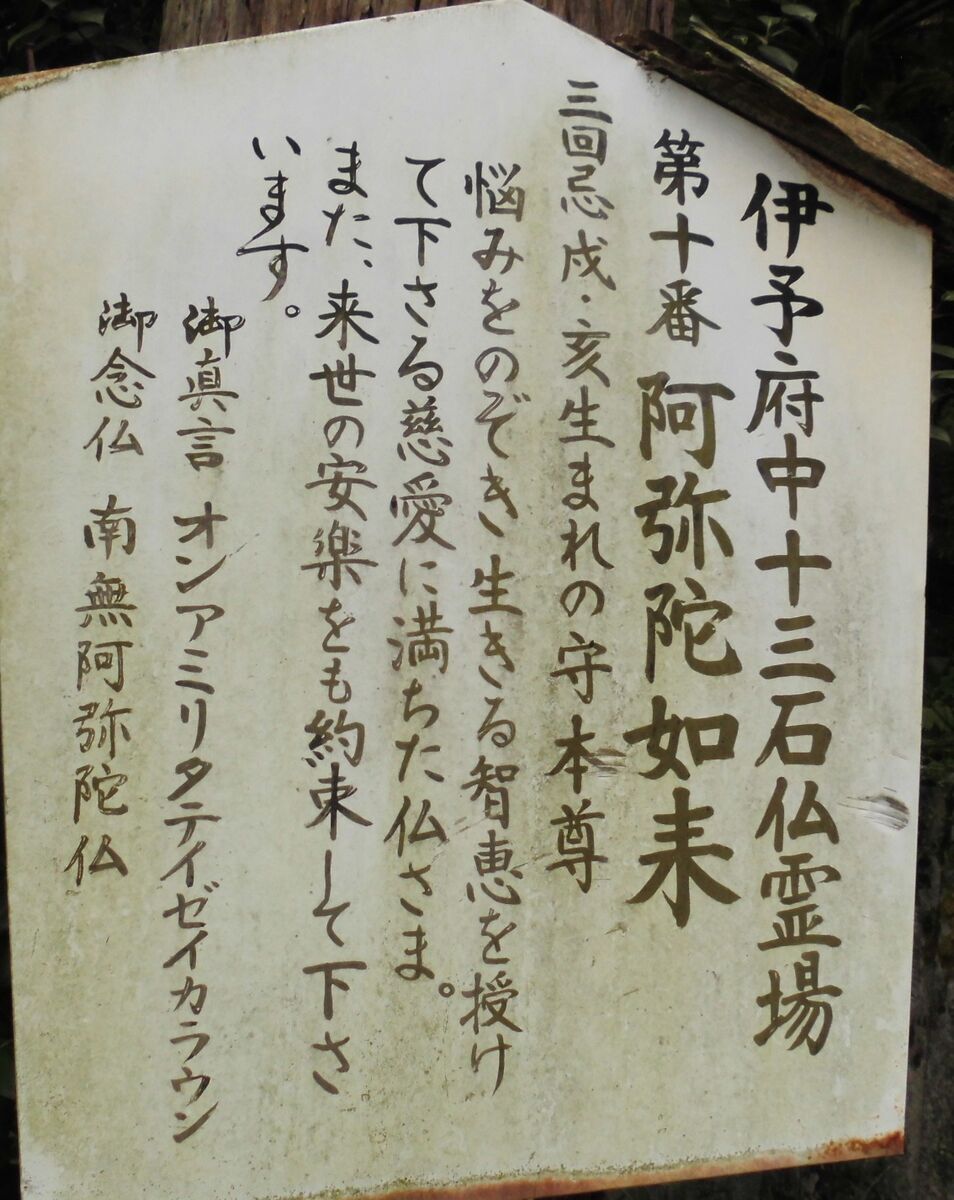 伊予府中十三石仏霊場
第十番 阿弥陀如来
三回忌戌・亥生まれの守本尊
悩みをのぞき生きる智恵を授け
て下さる慈愛に満ちた仏さま。
また、来世の安楽をも約束して下さ
います。
御真言 オンアミリタテイゼイカラウン
御念仏 南無阿弥陀仏